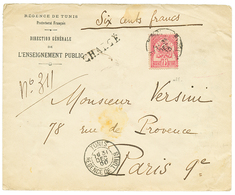 RÉGENCE DE TUNIS
Protectorat Français
DIRECTION GÉNÉRALE
DE
L'ENSEIGNEMENT PUBLIC
Six cents francs
CHARGÉ
N° 311
Monsieur Versini
78 rue de Provence
Paris 9e
TUNIS